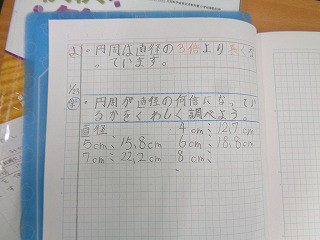 ま ・円周は直径の3倍より長くな
っています。
1/23
学 ・円周が直径の何倍になってい
るかをくわしく調べよう。
直径 4cm:12.7cm
5cm:15.8cm 6cm:18.8cm
7cm:22.2cm 8cm: